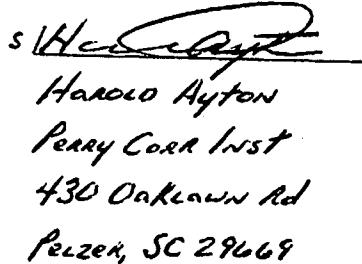 s/ Harold Ayton
Harold Ayton
Perry Corr Inst
430 Oaklawn Rd
Pelzer, SC 29669